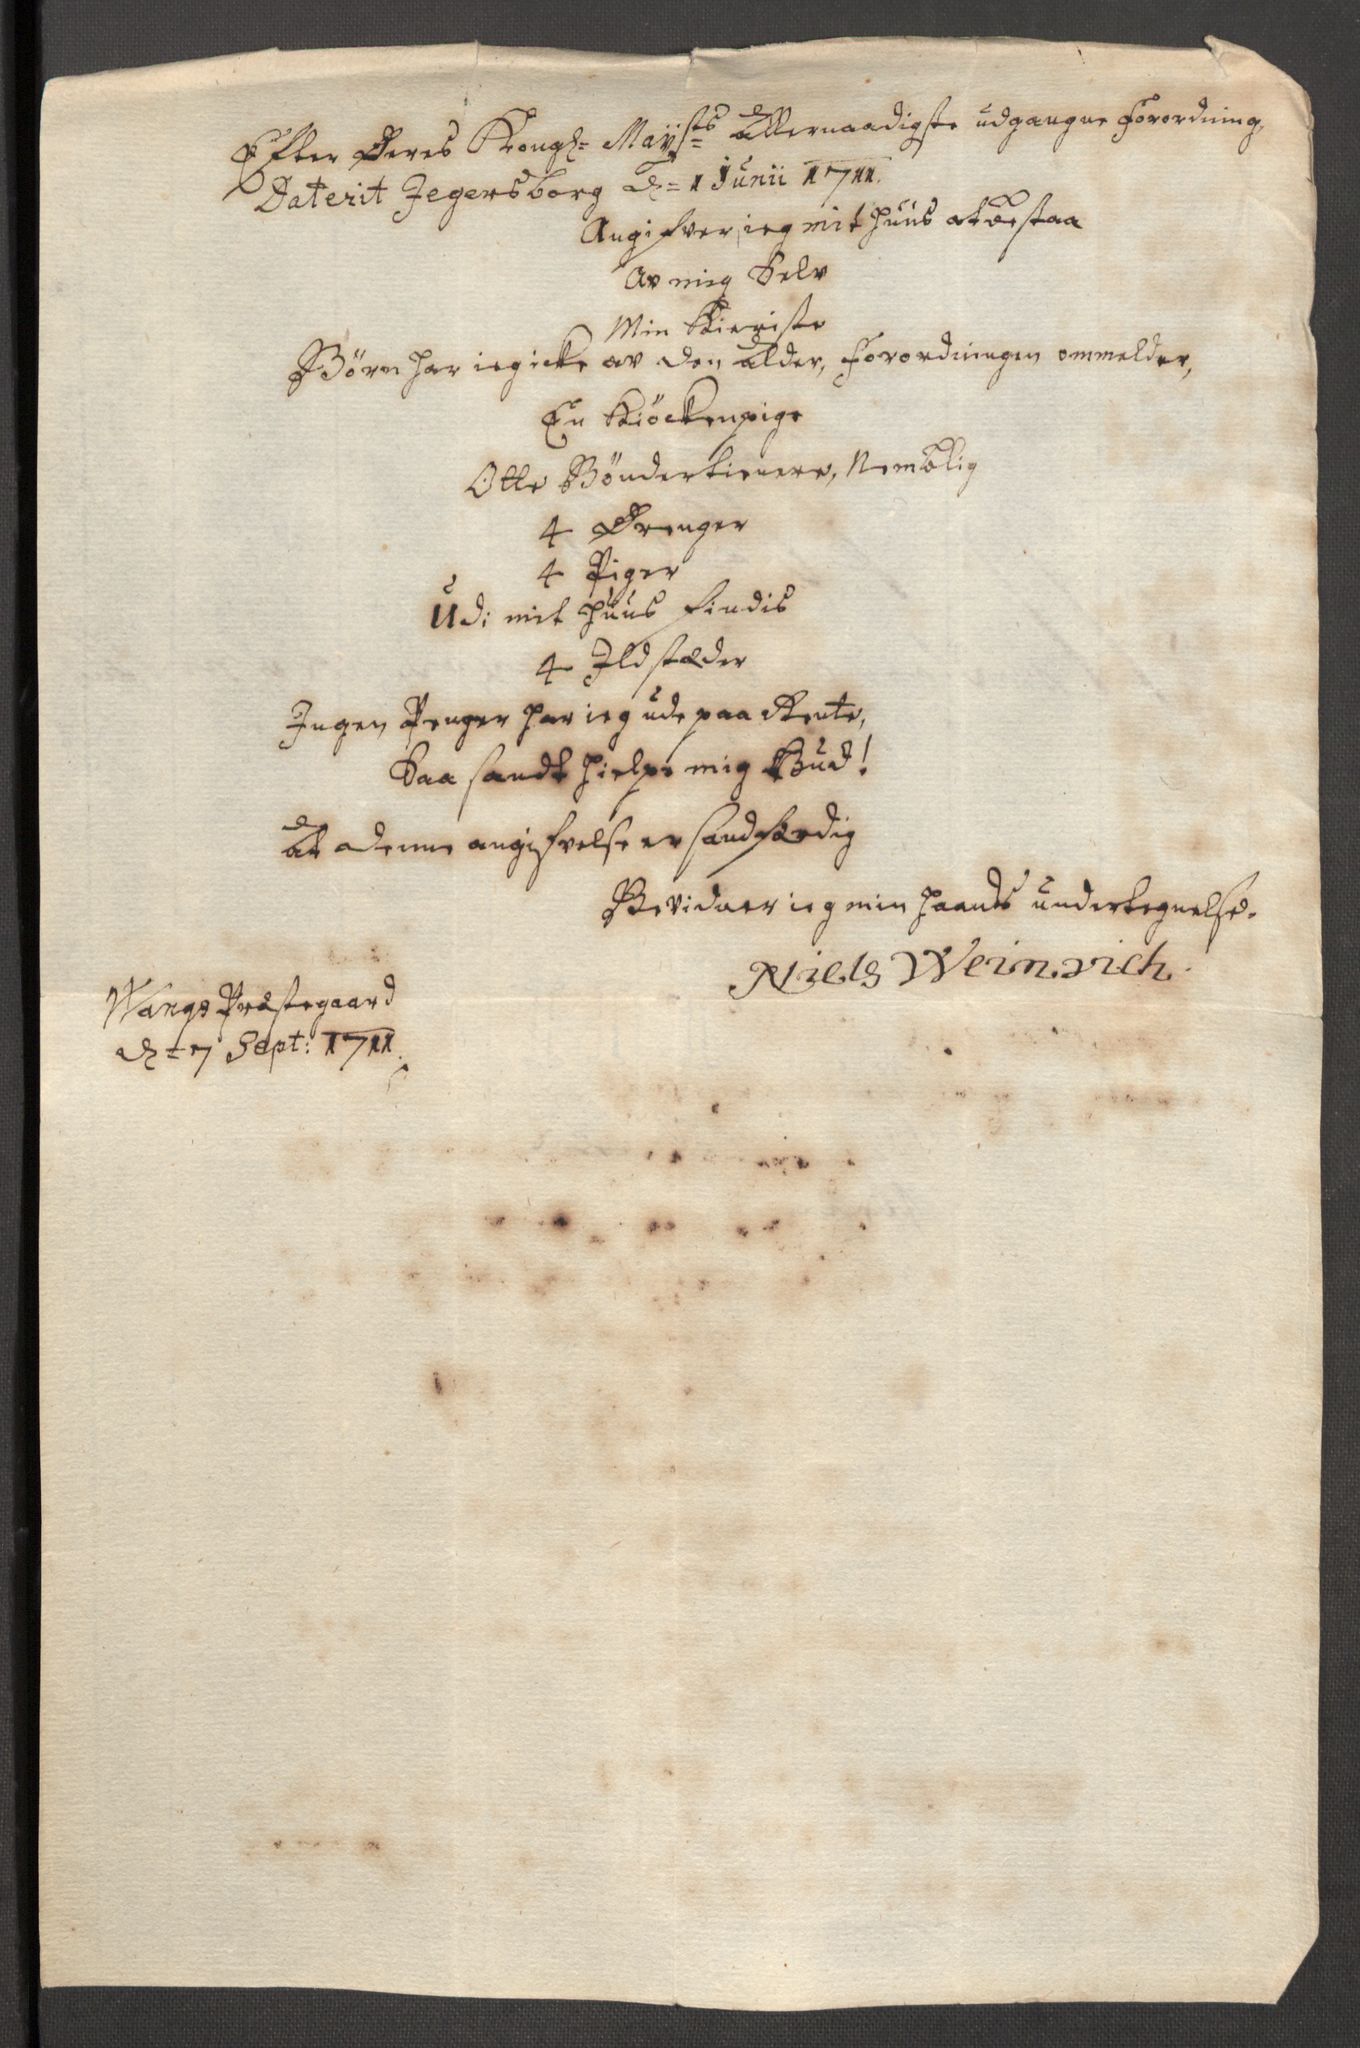 Efter Deres Kongl= Maÿsts Allernaadigste udgangne Forordning,
Daterit Jegersborg d= 1 Junii 1711.
Angifver jeg mit huus at bestaa
Av mig Selv
Min Kieriste
Børn har ieg icke av den Alder, Forordningen ommelder,
En Kiöckenpige
Otte Bönder tienere, Nemblig
4 Drenger
4 Piger
Udi mit huus findis
4 Ildstæder
Ingen Penger har ieg ude paa Rente,
Saa sandt hielpe mig Gud!
At denne angifvelse er sandfærdig
Bevidner ieg min haands undertegnelse.
Niels Weinwich.
Wangs Præstegaard
d= 7 Sept: 1711.